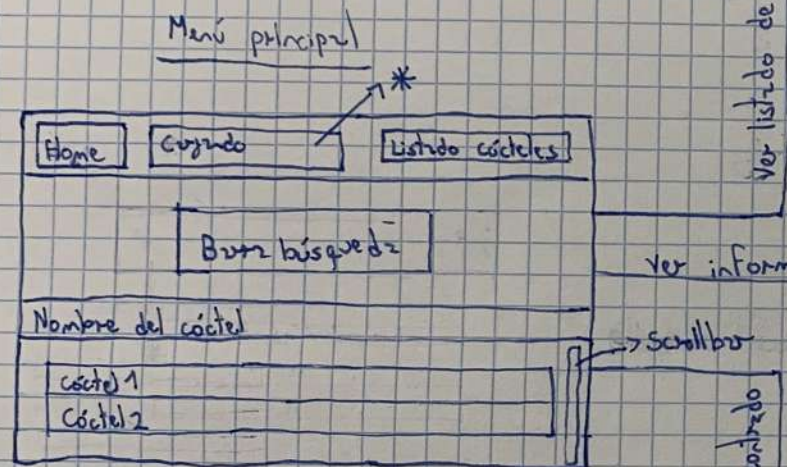 Menú principal
*
Home
Listado cócteles
Barra búsqueda
Nombre del cóctel
cóctel 1
Cóctel 2
Scrollbar
Ver listado de
Ver inform